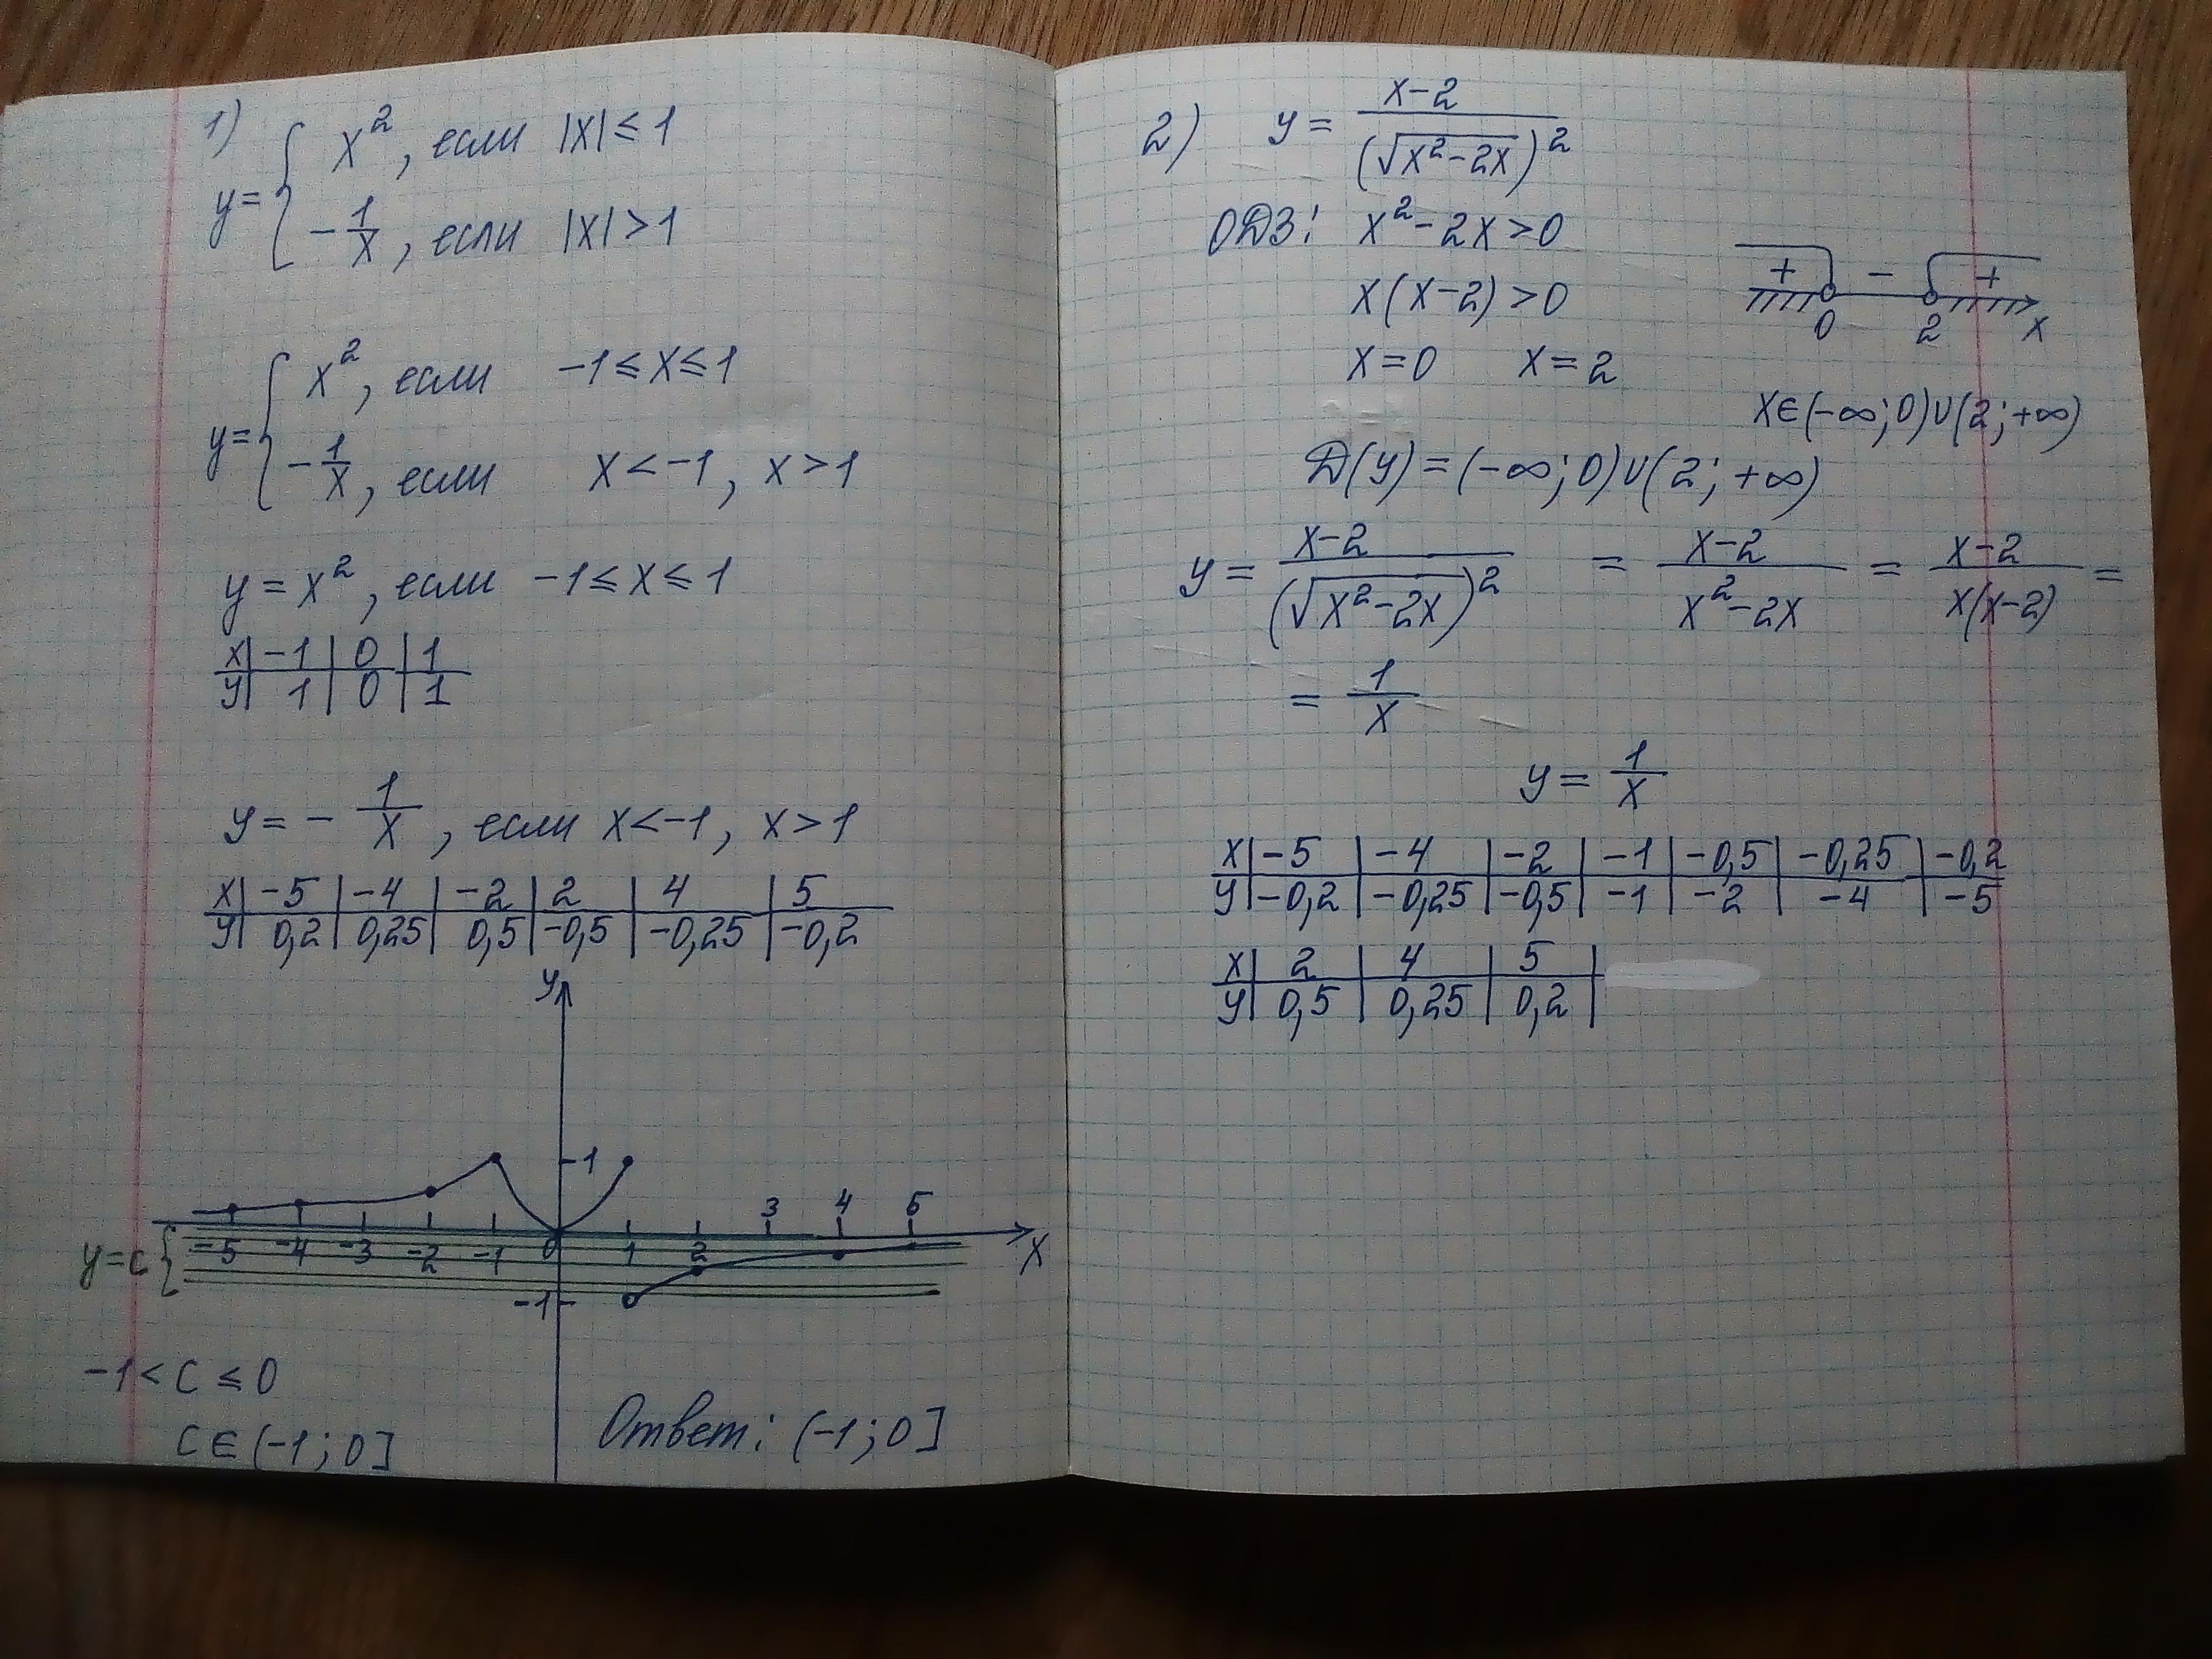 1)
y = { x², если |x| ≤ 1
-1/x, если |x| > 1
y = { x², если -1 ≤ x ≤ 1
-1/x, если x < -1, x > 1
y = x², если -1 ≤ x ≤ 1
x | -1 | 0 | 1
y | 1 | 0 | 1
y = - 1/x, если x < -1, x > 1
x | -5 | -4 | -2 | 2 | 4 | 5
y | 0,2 | 0,25 | 0,5 | -0,5 | -0,25 | -0,2
y
1
3 4 5
-5 -4 -3 -2 -1 0 1 2 x
y=c {
-1
-1 < c ≤ 0
c ∈ (-1; 0]
Ответ: (-1; 0]
2) y = (x-2)/(√(x²-2x))²
ОДЗ: x² - 2x > 0
x(x-2) > 0
+ - +
0 2 x
x = 0 x = 2
x ∈ (-∞; 0) ∪ (2; +∞)
Д(y) = (-∞; 0) ∪ (2; +∞)
y = (x-2)/(√(x²-2x))² = (x-2)/(x²-2x) = (x-2)/(x(x-2)) =
= 1/x
y = 1/x
x | -5 | -4 | -2 | -1 | -0,5 | -0,25 | -0,2
y | -0,2 | -0,25 | -0,5 | -1 | -2 | -4 | -5
x | 2 | 4 | 5 |
y | 0,5 | 0,25 | 0,2 |